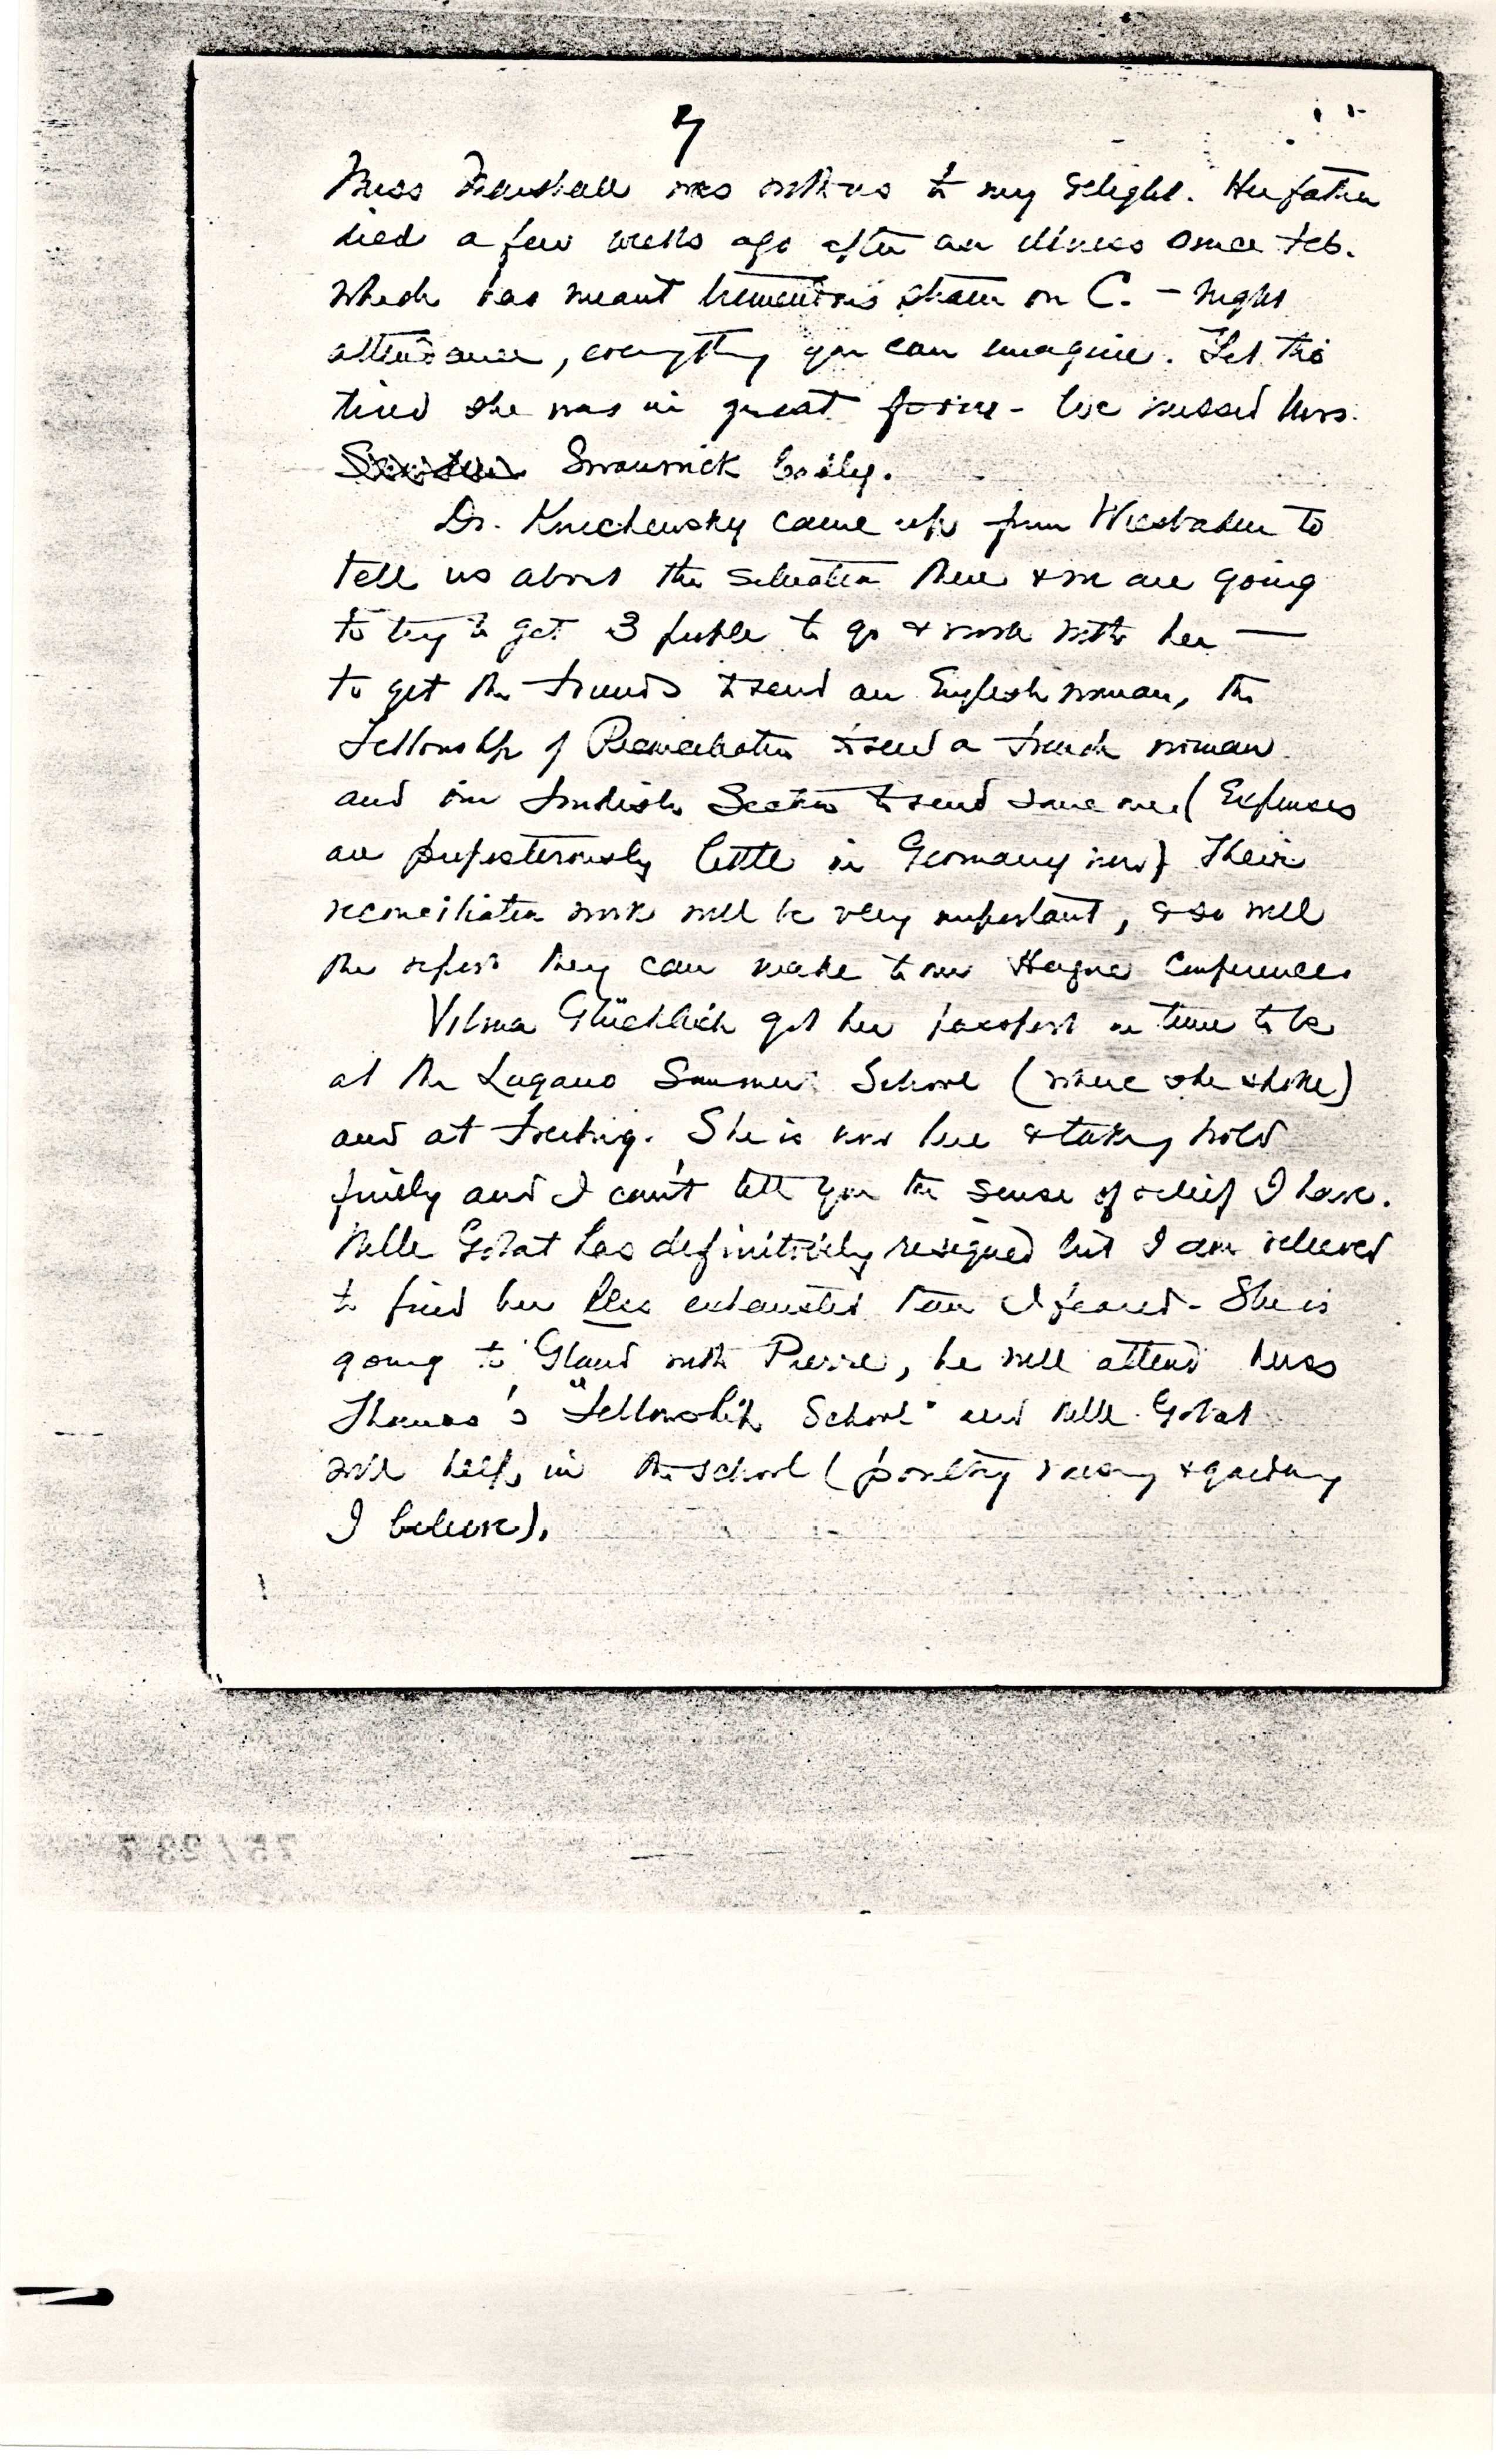 7
Miss Marshall was with us to my delight. Her father
died a few weeks ago after an illness since Feb.
which has meant tremendous strain on C. – night
attendance, everything you can imagine. Yet tho
tired she was in great form – We missed Mrs.
Swanwick badly.
Dr. Knischewsky came up from Wiesbaden to
tell us about the situation there & we are going
to try to get 3 people to go & work with her —
to get the Friends to send an English woman, the
Fellowship of Reconciliation to send a French woman
and our Swedish Section to send some one (Expenses
are preposterously little in Germany now) Their
reconciliation work will be very important, & so will
the report they can make to our Hague Conference
Vilma Glücklich got her passport in time to be
at the Lugano Summer School (where she spoke)
and at Freiburg. She is now here & taking hold
finely and I can't tell you the sense of relief I have.
Mlle Gobat has definitively resigned but I am relieved
to find her less exhausted than I feared – She is
going to Gland with Pierre, he will attend Miss
Thomas's "Fellowship School" and Mlle. Gobat
will help in the school (poultry raising &
I believe).
75/23 7